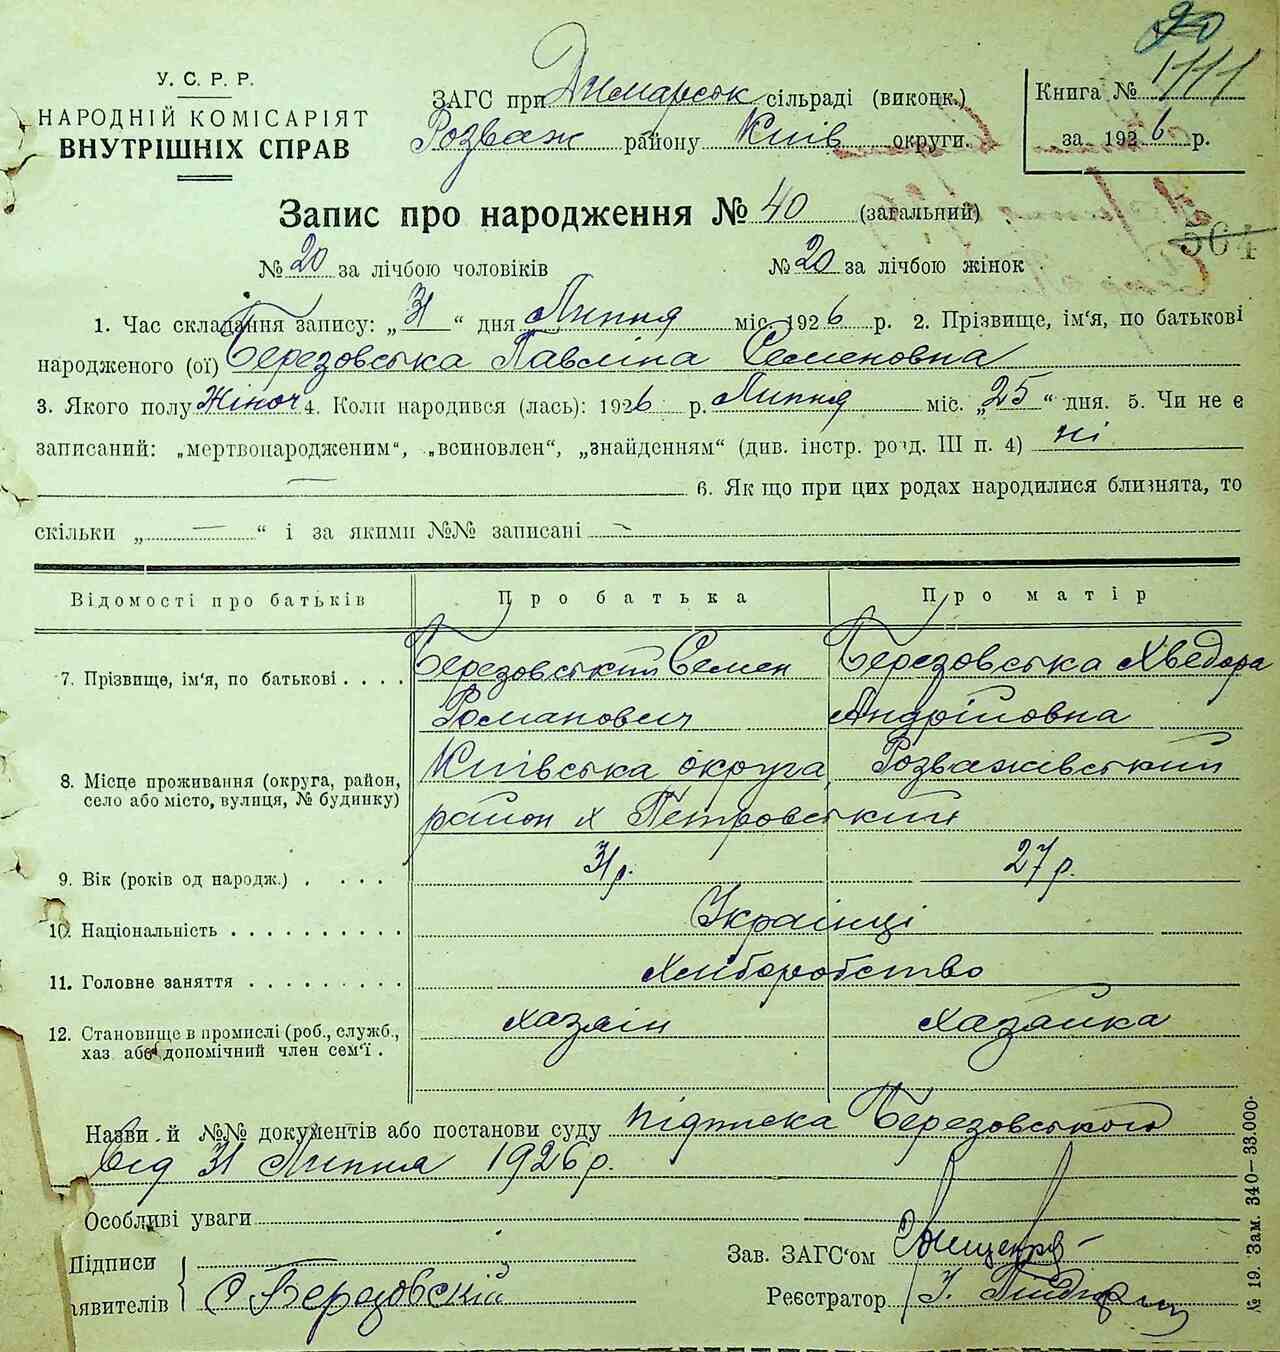 У. С. Р. Р.
НАРОДНІЙ КОМІСАРІЯТ
ВНУТРІШНІХ СПРАВ
ЗАГС при Димарсок сільраді (виконк.)
Розваж району Київ округи.
20
Книга № 1111
за 1926 р.
564
Запис про народження № 40 (загальний)
№ 20 за лічбою чоловіків № 20 за лічбою жінок
1. Час складання запису: „31“ дня Липня міс. 1926 р. 2. Прізвище, ім'я, по батькові
народженого (ої) Березовська Павліна Семеновна
3. Якого полу Жіноч 4. Коли народився (лась): 1926 р. Липня міс. „25“ дня. 5. Чи не є
записаний: „мертвонародженим“, „всиновлен“, „знайденням“ (див. інстр. розд. III п. 4) ні
— 6. Як що при цих родах народилися близнята, то
скільки „ — “ і за якими №№ записані —
Відомості про батьків Про батька Про матір
7. Прізвище, ім'я, по батькові . . . . Березовський Семен Березовська Хведора
Романович Андріївна
8. Місце проживання (округа, район, Київська округа, Розважівський
село або місто, вулиця, № будинку) район х Петровський
9. Вік (років од народж.) . . . . 31 р. 27 р.
10. Національність . . . . . . . . . . Українці
11. Головне заняття . . . . . . . . . Хліборобство
12. Становище в промислі (роб., служб., хазяїн хазяйка
хаз. або допомічний член сем'ї .
Назви й №№ документів або постанови суду підписка Березовського
від 31 Липня 1926 р.
Особливі уваги
Підписи
явителів С Березовскій
Зав. ЗАГС'ом
Реєстратор
№ 19. Зам. 340—33.000.